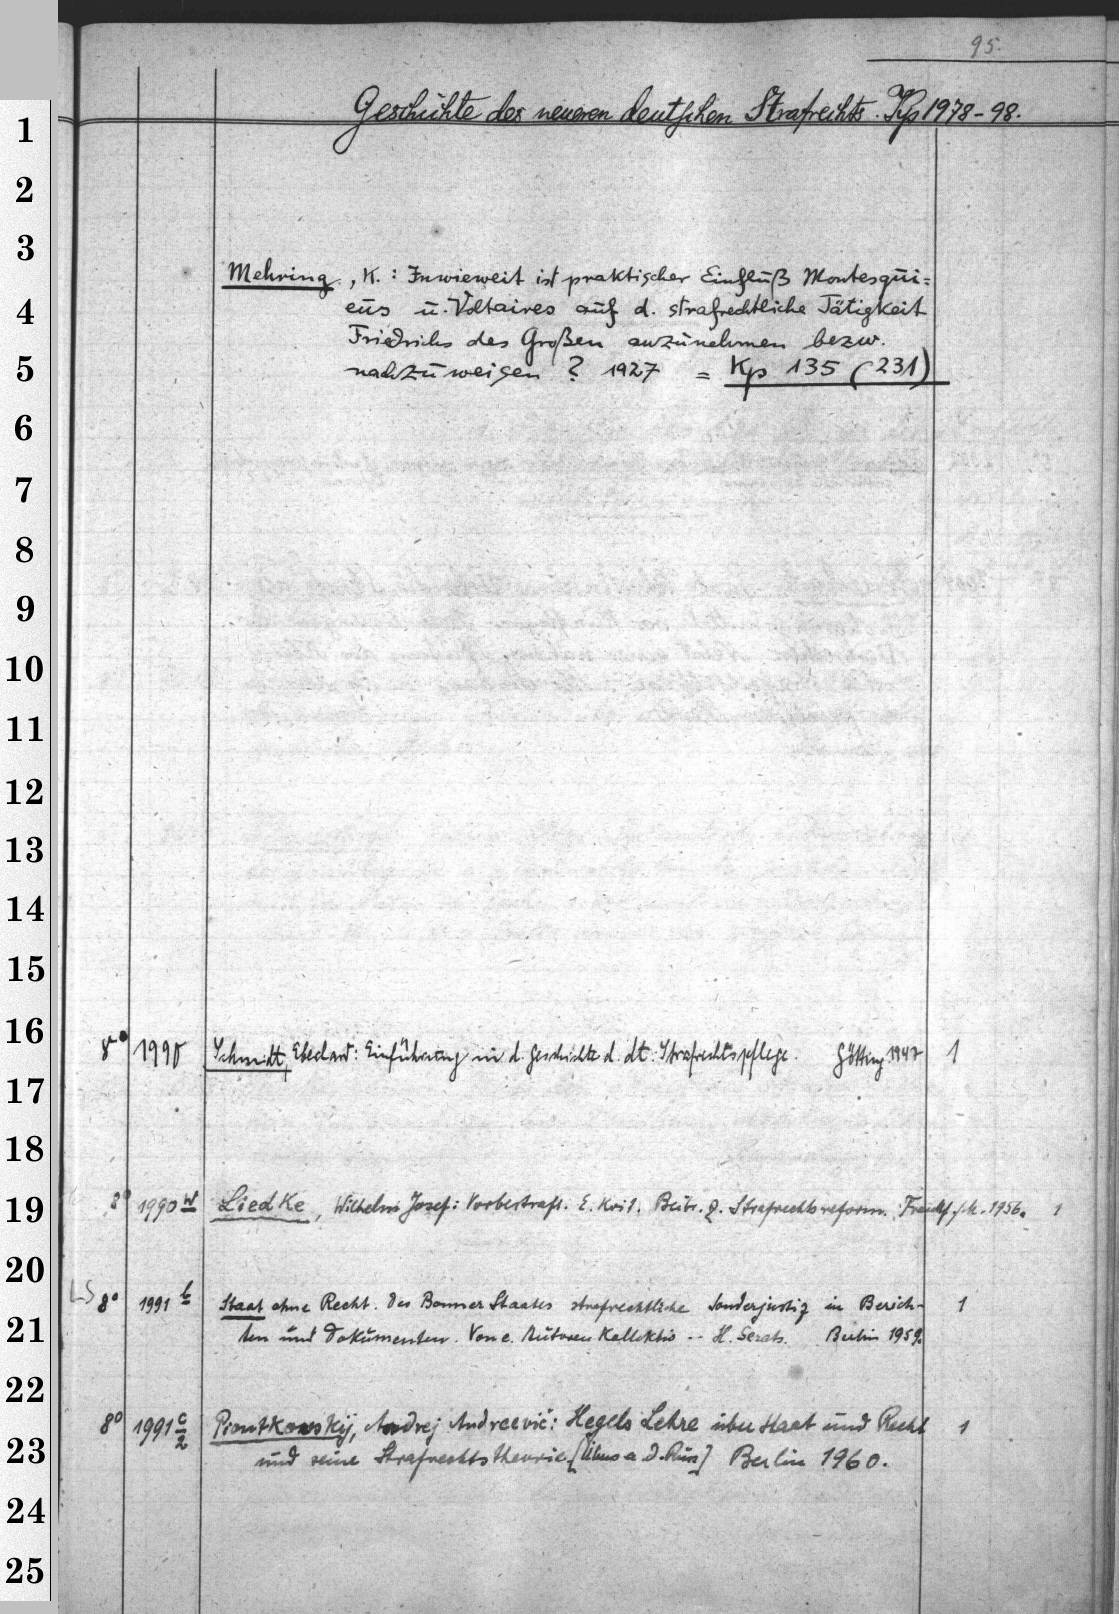 95.
Geschichte des neueren deutschen Strafrechts. Kp 1978-98.
1
2
3
Mehring, K.: Inwieweit ist praktischer Einfluß Montesqui=
4
eus u. Voltaires auf d. strafrechtliche Tätigkeit
Friedrichs des Großen anzunehmen bezw.
5
nachzuweisen? 1927 = Kp 135 (231)
6
7
8
9
10
11
12
13
14
15
16
8° 1990 Schmidt, Eberhard: Einführung in d. Geschichte d. dt. Strafrechtspflege. Götting 1947 1
17
18
19
8° 1990 w Liedke, Wilhelm Josef: Vorbestraft. E. Krit. Beitr. z. Strafrechtsreform. 1956. 1
20
LS 8° 1991 b Staat ohne Recht. Des Bonner Staates strafrechtliche Sonderjustiz in Berich- 1
21
ten und Dokumenten. Von e. Autoren Kollektiv -- H. Berlin 1959.
22
8° 1991 c/2 Piontkowskij, Andrej Andreevič: Hegels Lehre über Staat und Recht 1
23
und seine Strafrechtstheorie. [Übers a. d. Russ] Berlin 1960.
24
25